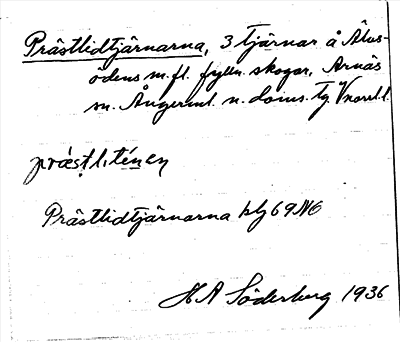 Prästlidtjärnarna, 3 tjärnar å Älus-
ödens m. fl. fylln. skogar, Arnäs
sn. Ångerml. n. doms. tg. Vnorrl. l.
Prästlidtjärnarna blg 69 NO
H A Söderberg 1936